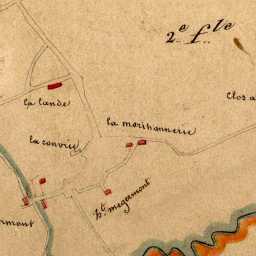 2e fle
Clos a
la lande
la morihannerie
la convrie
ht. megermont
rmont